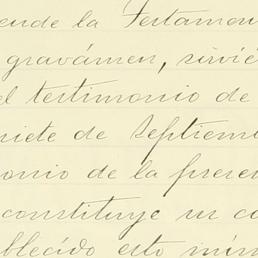 ende la Testamen
gravámen, sirvié
el testimonio de
siete de Septiem
onio de la prese
constituye un co
blecido esto mis